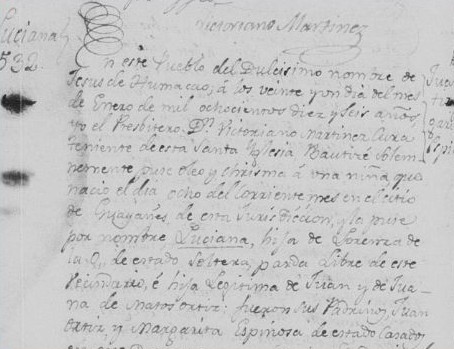 Victoriano Martinez
Luciana
532
En este Pueblo del Dulcisimo nombre de
Jesus de Humacao, á los veinte y un dia del mes
de Enero de mil ochocientos diez y seis años,
yo el Presbitero Dn. Victoriano Martinez Cura
teniente de esta Santa Iglesia Bautizé solem
nemente puse oleo y chrisma á una niña que
nacio el dia ocho del corriente mes en el citio
de Guayanes de esta Jurisdiccion, y la puse
por nombre Luciana, hija de Lorenza de
la O, de estado soltera, parda libre de este
Vecindario, é hija legitima de Juan y de Jua
na de Matos ortiz: fueron sus Padrinos Juan
Ortiz y Margarita Espinosa de estado Casados